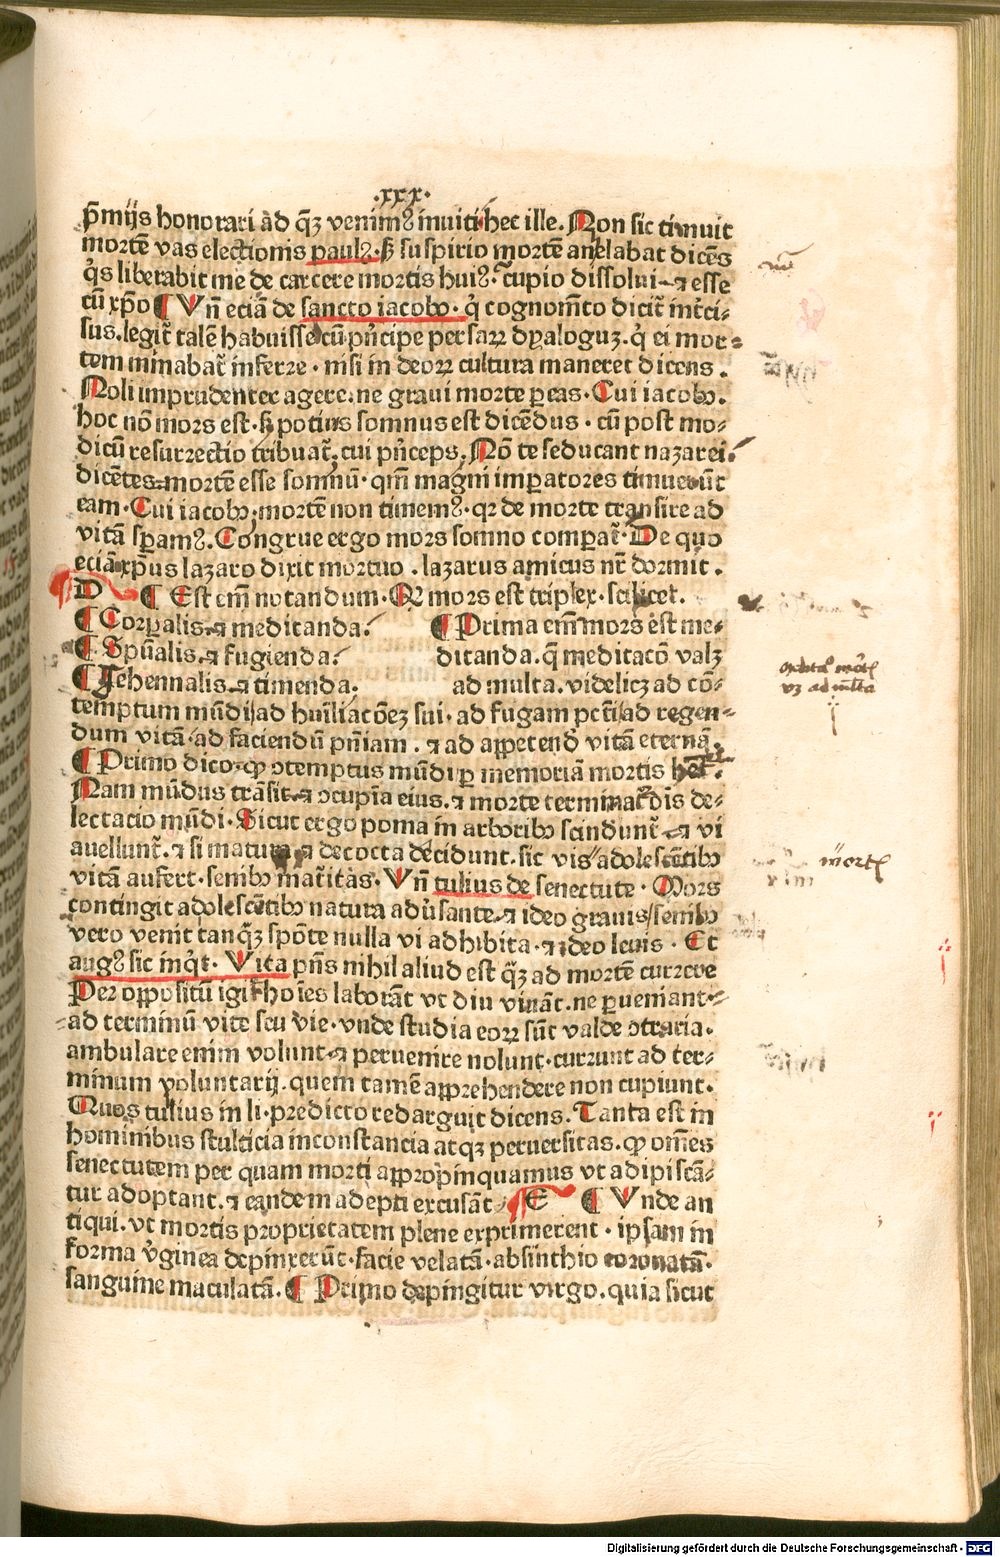 .xxx.
p̄mijs honorari ad q̄ꝫ venimꝰ inuiti hec ille. Non sic timuit
mortē vas electionis paulꝰ. sꝫ suspirio mortē anelabat dicēs
q̇s liberabit me de carcere mortis huiꝰ. cupio dissolui ⁊ esse
cū xp̄o ¶ Vn̄ eciā de sancto iacobo. q̇ cognomēto dicit᷑ int̄ci-
sus. legit᷑ talē habuisse cū pn̄cipe persaꝝ dyaloguꝫ. q̇ ei mor-
tem minabat᷑ inferre. nisi in deoꝝ cultura maneret dicens.
Noli imprudenter agere. ne graui morte pereas. Cui iacobꝰ.
hoc nō mors est. sꝫ potius somnus est dicēdus. cū post mo-
dicū resurrectio tribuat᷑. cui pn̄ceps. Nō te seducant nazarei
dicētes mortē esse somnū. qm̄ magni imꝑatores timuerūt
eam. Cui iacobꝰ. mortē non timemꝰ. qꝛ de morte transire ad
vitā sꝑamꝰ. Congrue ergo mors somno comꝑat᷑. De quo
eciā xp̄us lazaro dixit mortuo. lazarus amicus nr̄ dormit.
D ¶ Est em̄ notandum. Q mors est triplex. scilicet.
¶ Corꝑalis ⁊ meditanda. ¶ Prima em̄ mors est me-
¶ Spūalis ⁊ fugienda. ditanda. q̄ meditacō valꝫ
¶ Jehennalis ⁊ timenda. ad multa. videlicꝫ ad cō-
temptum mūdi ad humiliacōeꝫ sui. ad fugam pct̄i ad regen-
dum vitā. ad faciendū pn̄iam. ⁊ ad appetendū vitā eternā.
¶ Primo dico ꝙ ꝯtemptus mūdi ꝑ memoriā mortis het᷑.
Nam mūdus trāsit ⁊ ꝯcupīa eius. ⁊ morte terminat᷑ oīs de-
lectacio mūdi. Sicut ergo poma in arboribꝰ scindunt᷑ ⁊ vi
auellunt᷑. ⁊ si matura ⁊ decocta decidunt. sic vis adolescētibꝰ
vitā aufert. senibꝰ mat᷑itas. Vn̄ tulius de senectute. Mors
contingit adolescētibꝰ natura aduersante ⁊ ideo grauis senibꝰ
vero venit tanq̄ꝫ spōte nulla vi adhibita. ⁊ ideo leuis. Et
augꝰ sic inq̇t. Vita pn̄s nihil aliud est q̄ꝫ ad mortē currere
Per oppositū igit᷑ hoīes laborāt vt diu viuāt. ne ꝑueniant
ad terminū vite seu vie. vnde studia eoꝝ sūt valde ꝯtraria.
ambulare enim volunt ⁊ peruenire nolunt. currunt ad ter-
minum voluntarij. quem tamē apprehendere non cupiunt.
Quos tulius in li. predicto redarguit dicens. Tanta est in
hominibus stulticia inconstancia atqꝫ peruersitas. ꝙ omēs
senectutem per quam morti appropinquamus vt adipiscā-
tur adoptant. ⁊ eandem adepti excusāt E ¶ Vnde an
tiqui. vt mortis proprietatem plene exprimerent. ipsam in
forma v̄ginea depinxerūt. facie velatā. absinthio coronatā.
sanguine maculatā. ¶ Primo depingitur virgo. quia sicut
Digitalisierung gefördert durch die Deutsche Forschungsgemeinschaft - DFG